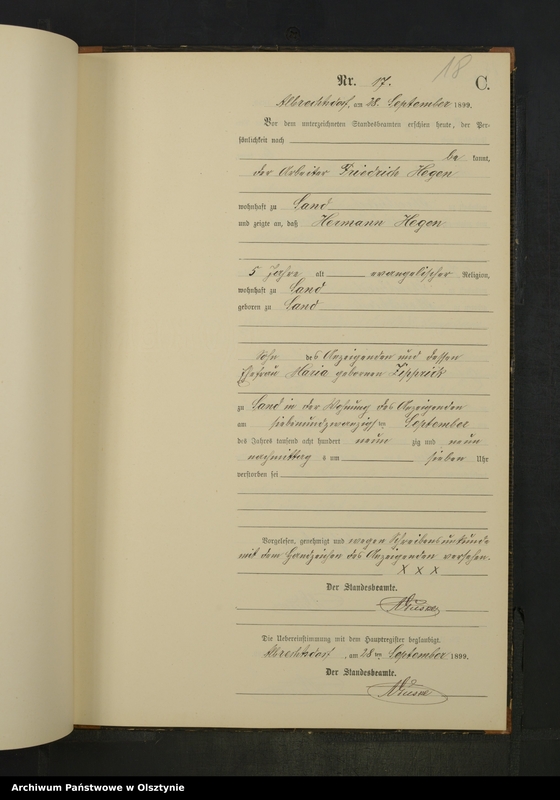 18
Nr. 17. C.
Albrechtsdorf, am 28. September 1899.
Vor dem unterzeichneten Standesbeamten erschien heute, der Per-
sönlichkeit nach
be kannt,
der Arbeiter Friedrich Hegen
wohnhaft zu Sand
und zeigte an, daß Hermann Hegen
5 Jahre alt evangelischer Religion,
wohnhaft zu Sand
geboren zu Sand
Sohn des Anzeigenden und dessen
Ehefrau Maria geborenen
zu Sand in der Wohnung des Anzeigenden
am siebenundzwanzigsten September
des Jahres tausend acht hundert neun zig und neun
nachmittag s um sieben Uhr
verstorben sei
Vorgelesen, genehmigt und wegen Schreibensunkunde
mit dem Handzeichen des Anzeigenden versehen.
X X X
Der Standesbeamte.
Die Uebereinstimmung mit dem Hauptregister beglaubigt.
Albrechtsdorf, am 28ten September 1899.
Der Standesbeamte.
Archiwum Państwowe w Olsztynie